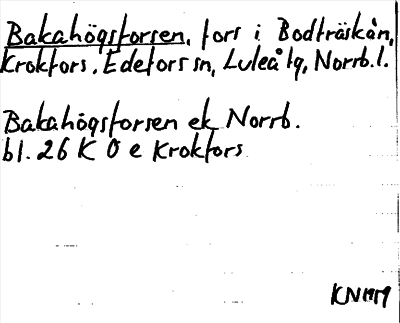 Bakahögsforsen, fors i Bodträskån,
Krokfors. Edefors sn, Luleå tg, Norrb. l.
Bakahögsforsen ek Norrb.
bl. 26 K O e Krokfors